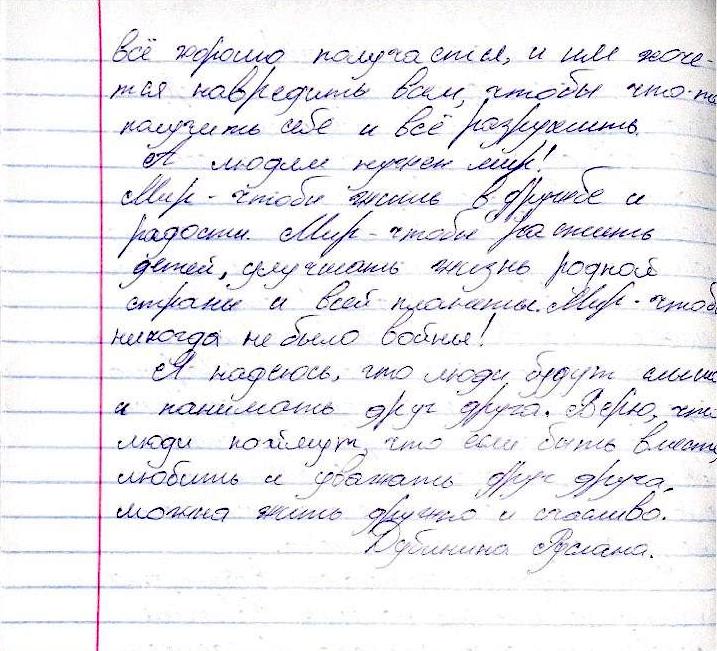 всё хорошо получается, и им хоче-
тся навредить вам, чтобы что-то
получить себе и всё разрушить.
А людям нужен мир!
Мир - чтобы жить в дружбе и
радости. Мир - чтобы растить
детей, улучшать жизнь родной
страны и всей планеты. Мир - чтобы
никогда не было войны!
Я надеюсь, что люди будут
и понимать друг друга. Верю, что
люди поймут, что если быть вместе,
любить и уважать друг друга,
можна жить дружно и счасливо.
Дубинина Руслана.